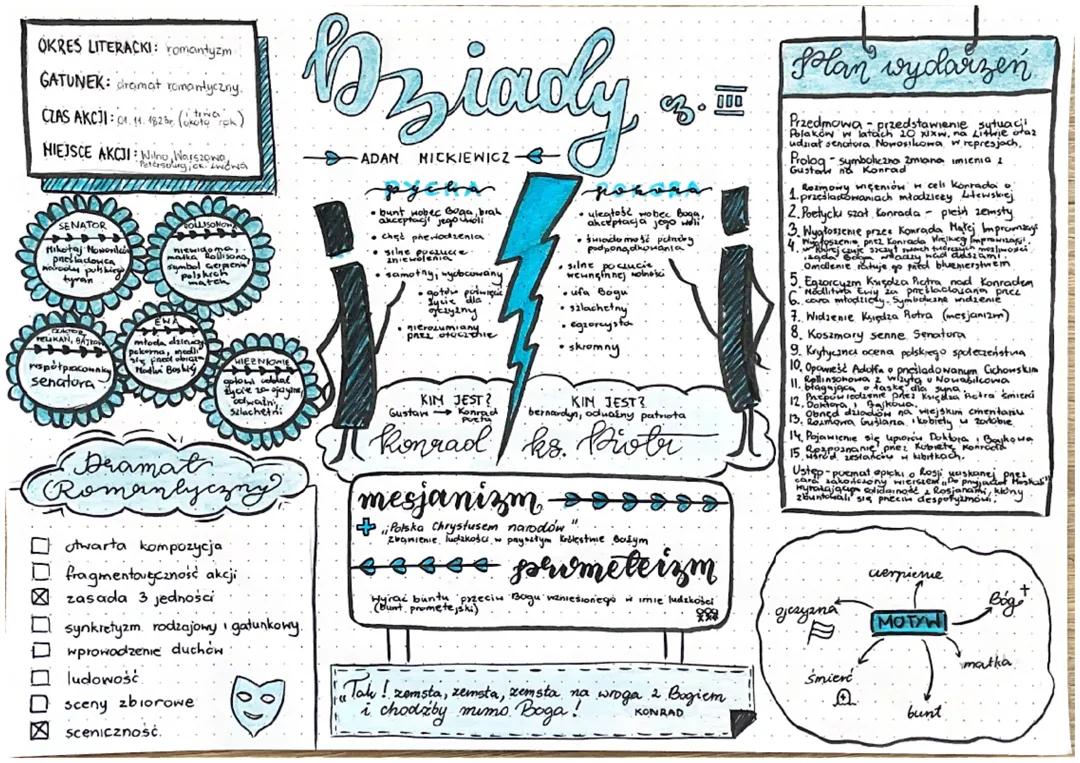 OKRES LITERACKI: romantyzm
GATUNEK: dramat romantyczny
CZAS AKCJI: 01. 11. 1823r. (i trwa
około rok)
MIEJSCE AKCJI: Wilno, Warszawa
Petersburg, ok. Lwowa
Dziady cz. III
ADAM MICKIEWICZ
SENATOR
Mikołaj Nowosilcow
prześladowca
narodu polskiego
tyran
ROLLISONOWA
niewidoma,
matka Rollisona,
symbol cierpienia
polskich
matek
DOKTOR,
PELIKAN, BAJKOW
współpracownicy
senatora
EWA
młoda dziewczyna
pokorna, modli
się przed obrazem
Matki Boskiej
WIĘŹNIOWIE
gotowi oddać
życie za ojczyznę,
odważni,
szlachetni
PYCHA
• bunt wobec Boga, brak
akceptacji jego woli
• chęć przewodzenia
• silne poczucie
zniewolenia
• samotny, wyobcowany
• gotów poświęcić
życie dla
ojczyzny
• nierozumiany
przez otoczenie
KIM JEST?
Gustaw → Konrad
poeta
Konrad
POKORA
• uległość wobec Boga,
akceptacja jego woli
• świadomość potrzeby
podporządkowania
• silne poczucie
wewnętrznej wolności
• ufa Bogu
• szlachetny
• egzorcysta
• skromny
KIM JEST?
bernardyn, odważny patriota
ks. Piotr
mesjanizm
"Polska Chrystusem narodów"
zbawienie ludzkości w przyszłym Królestwie Bożym
prometeizm
wyraz buntu przeciw Bogu wzniesionego w imię ludzkości
(bunt prometejski)
„Tak! zemsta, zemsta, zemsta na wroga z Bogiem
i choćby mimo Boga!
KONRAD
Dramat
Romantyczny
otwarta kompozycja
fragmentaryczność akcji
zasada 3 jedności
synkretyzm rodzajowy i gatunkowy
wprowadzenie duchów
ludowość
sceny zbiorowe
sceniczność
Plan wydarzeń
Przedmowa - przedstawienie sytuacji
Polaków w latach 20 XIXw. na Litwie oraz
udział senatora Nowosilkowa w represjach.
Prolog - symboliczna zmiana imienia z
Gustaw na Konrad
1. Rozmowy więźniów w celi Konrada o
prześladowaniach młodzieży Litewskiej
2. Poetycki szał Konrada - pieśń zemsty
3. Wygłoszenie przez Konrada Małej Improwizacji
4. Wygłoszenie przez Konrada Wielkiej Improwizacji,
w której czuje szczyt swoich twórczych możliwości
żąda Boga władzy nad duszami.
Omdlenie ratuje go przed bluźnierstwem
5. Egzorcyzm Księdza Piotra nad Konradem
6. Modlitwa Ewy za prześladowaną przez
cara młodzieży. Symboliczne widzenie
7. Widzenie Księdza Piotra (mesjanizm)
8. Koszmary senne Senatora
9. Krytyczna ocena polskiego społeczeństwa
10. Opowieść Adolfa o prześladowanym Cichowskim
11. Rollinsonowa z wizytą u Nowosilcowa
błagająca o łaskę dla syna.
12. Przepowiedzenie przez Księdza Piotra śmierci
Doktora i Bajkowa.
13. Obrzęd dziadów na wiejskim cmentarzu
Rozmowa Guślarza i kobiety w żałobie.
14. Pojawienie się upiorów Doktora i Bajkowa
15. Rozpoznanie przez kobietę Konrada
wśród zesłańców w kibitkach.
Ustęp - poemat epicki o Rosji uciskanej przez
cara zakończony wierszem „Do przyjaciół Moskali"
wyrażającym solidarność z Rosjanami, którzy
zbuntowali się przeciw despotyzmowi.
MOTYW
cierpienie
Bóg
matka
bunt
śmierć
ojczyzna